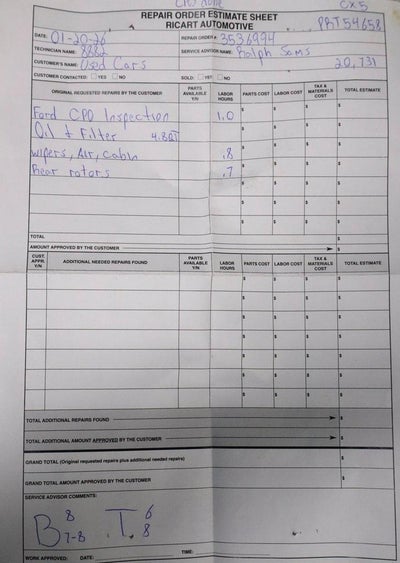 CPO done
CX5
REPAIR ORDER ESTIMATE SHEET
RICART AUTOMOTIVE
PRT54658
DATE: 01-20-26 REPAIR ORDER# 3536994
TECHNICIAN NAME: 8882 SERVICE ADVISOR NAME: Ralph Sams
CUSTOMER'S NAME: Used Cars 20,731
CUSTOMER CONTACTED: YES NO SOLD: YET NO
ORIGINAL REQUESTED REPAIRS BY THE CUSTOMER PARTS AVAILABLE Y/N LABOR HOURS PARTS COST LABOR COST TAX & MATERIALS COST TOTAL ESTIMATE
Ford CPO Inspection 1.0 $ $ $ $
Oil & Filter 4.8QT $ $ $ $
wipers, Air, Cabin .8 $ $ $ $
Rear rotors .7 $ $ $ $
$ $ $ $
$ $ $ $
$ $ $ $
TOTAL $
AMOUNT APPROVED BY THE CUSTOMER $
CUST. APPR. Y/N ADDITIONAL NEEDED REPAIRS FOUND PARTS AVAILABLE Y/N LABOR HOURS PARTS COST LABOR COST TAX & MATERIALS COST TOTAL ESTIMATE
$ $ $ $
$ $ $ $
$ $ $ $
$ $ $ $
$ $ $ $
$ $ $ $
$ $ $ $
TOTAL ADDITIONAL REPAIRS FOUND $
TOTAL ADDITIONAL AMOUNT APPROVED BY THE CUSTOMER $
GRAND TOTAL (Original requested repairs plus additional needed repairs) $
GRAND TOTAL AMOUNT APPROVED BY THE CUSTOMER $
SERVICE ADVISOR COMMENTS:
B 8 T. 6
7-8 8
WORK APPROVED: DATE: TIME: